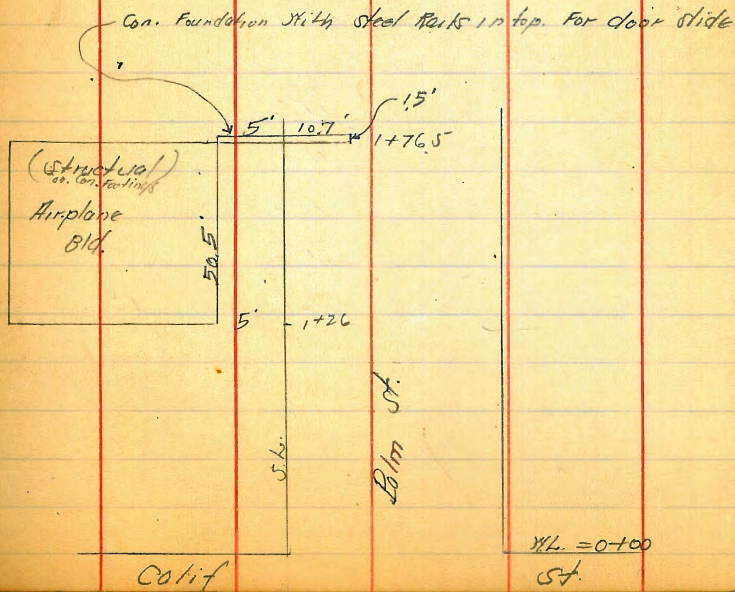 Con. Foundation With Steel Rails in top. For door slide
1.5'
5' 10.7'
1+76.5
(Structural)
on. Con. Footings
Airplane
Bld.
50.5'
5' 1+26
Palm St.
S.L.
W.L. = 0+00
Calif St.